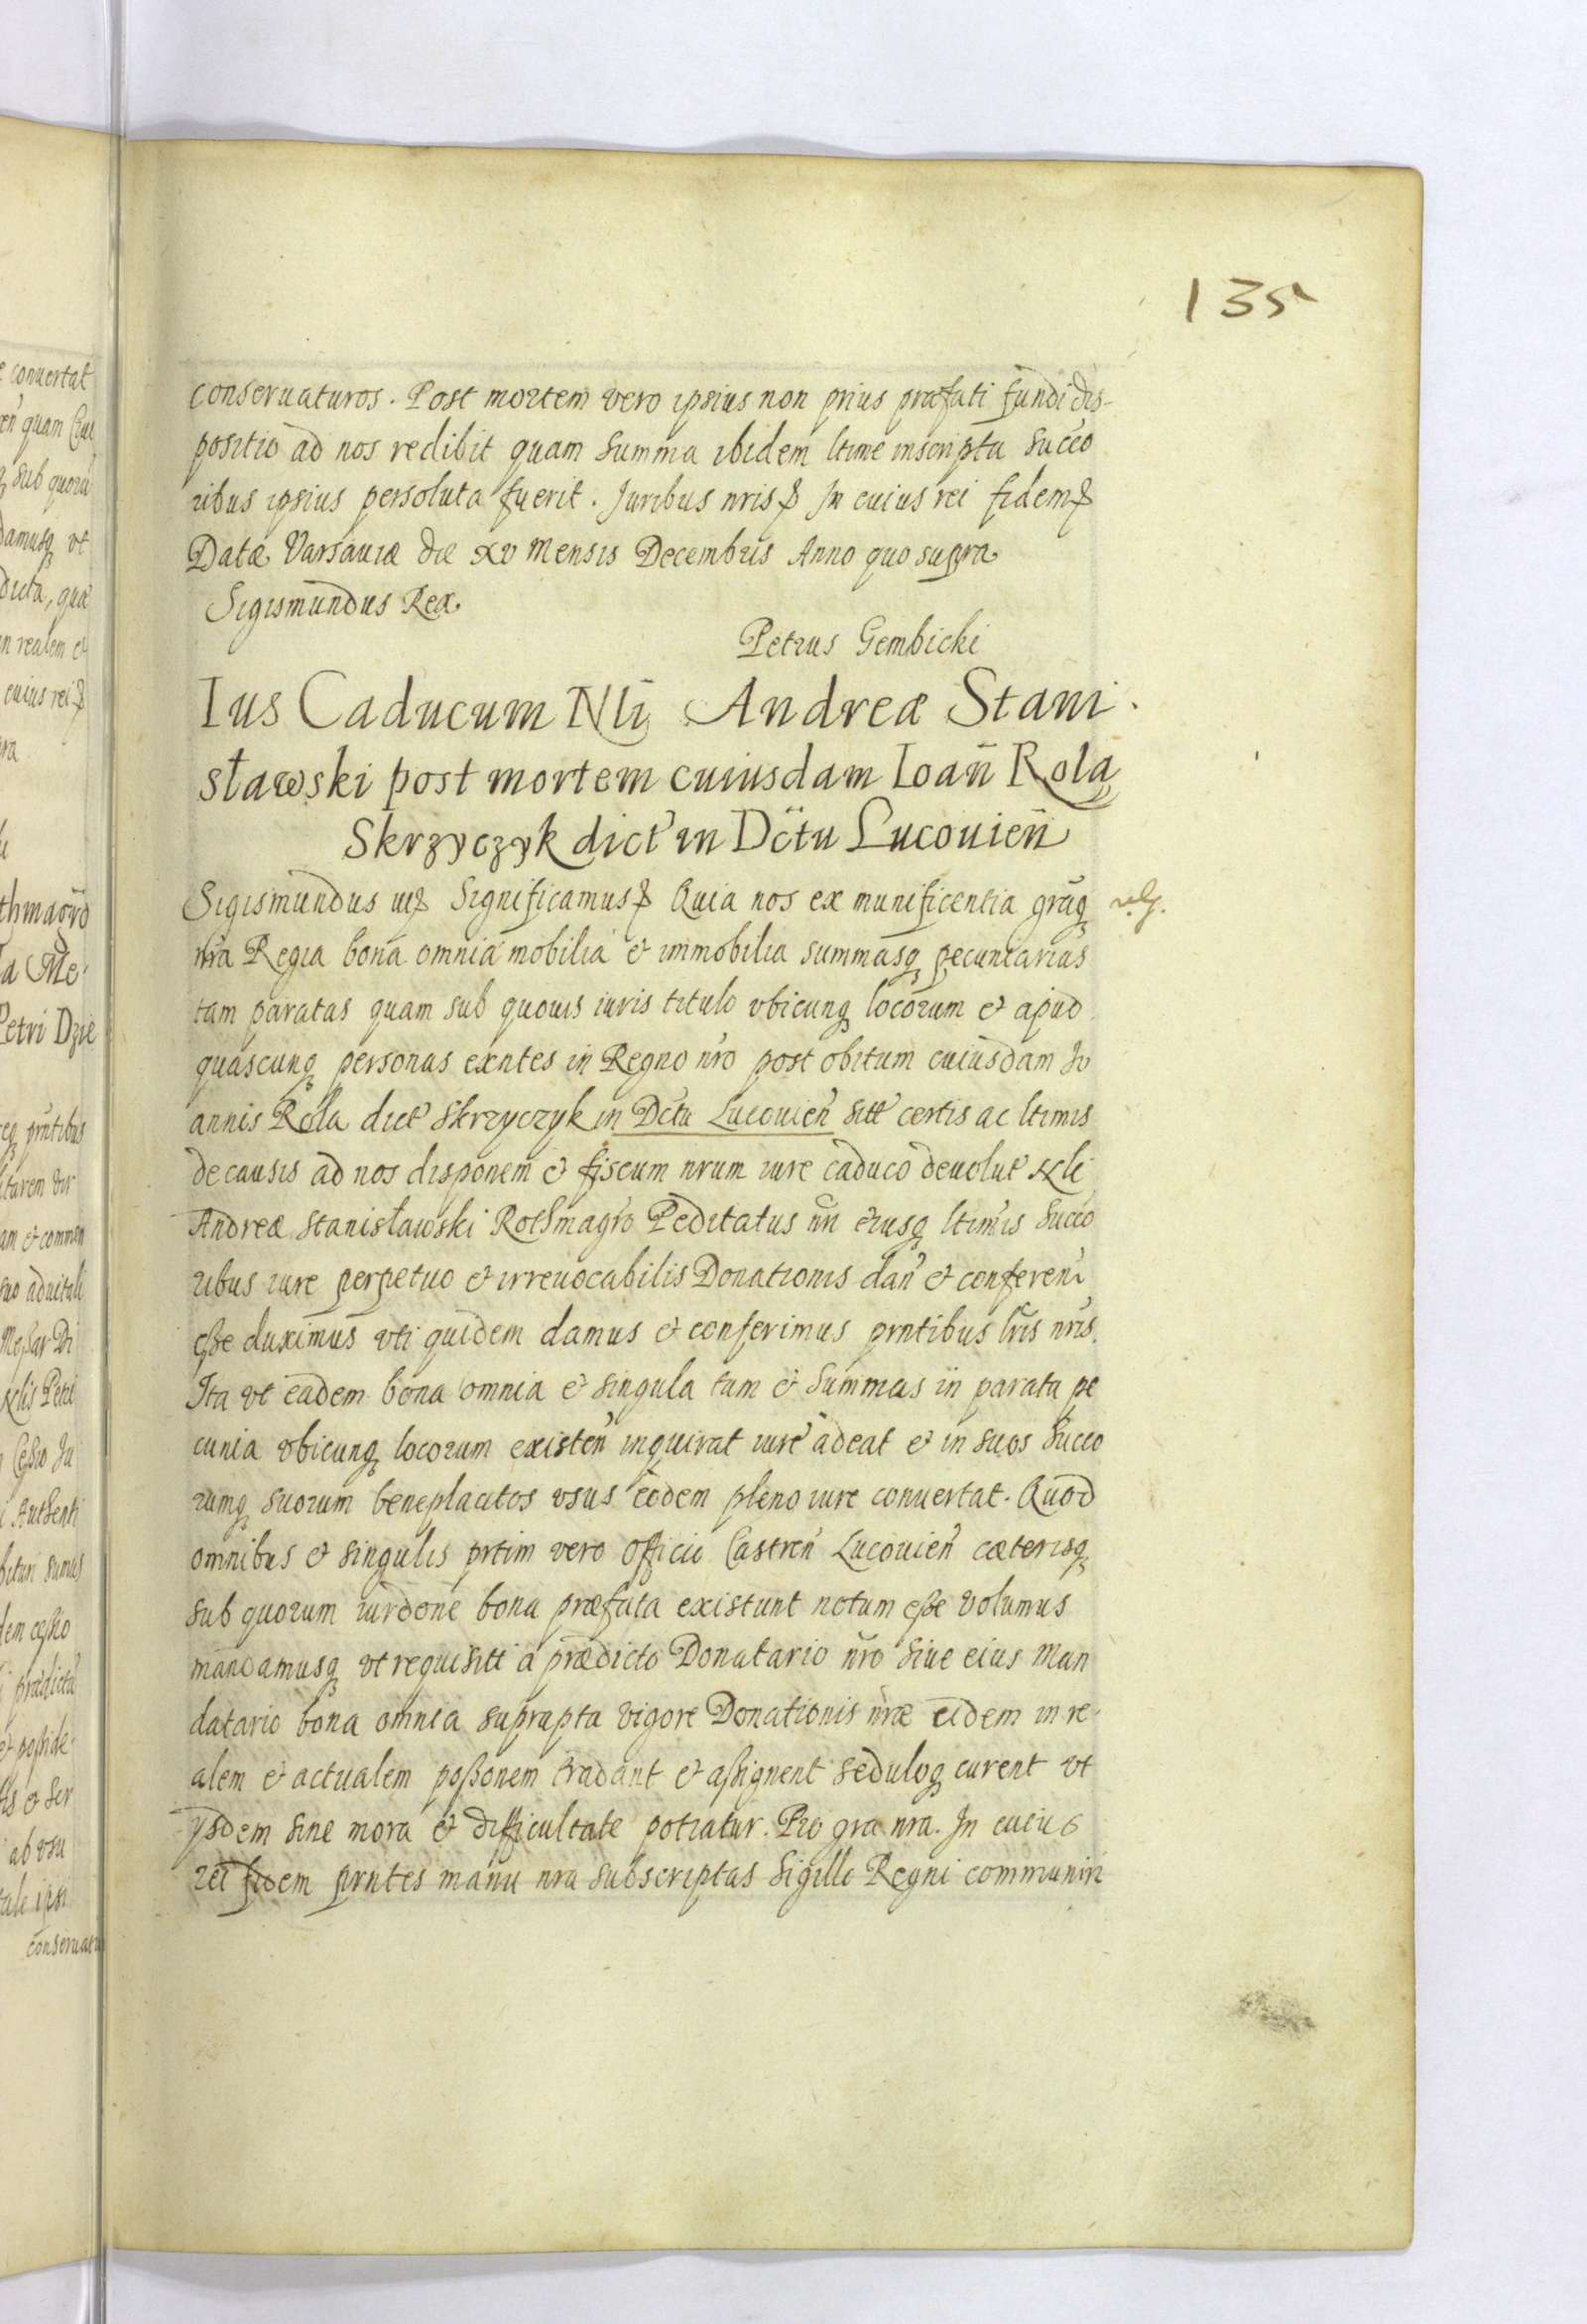 135
conseruaturos. Post mortem vero ipsius non prius præfati fundi dis-
positio ad nos redibit quam summa ibidem ltime inscripta succo
ribus ipsius persoluta fuerit. Juribus nris & In cuius rei fidem &
Datæ Varsaviæ die xv Mensis Decembris Anno quo supra
Sigismundus Rex.
Petrus Gembicki
Ius Caducum Nli Andreæ Stani
sławski post mortem cuiusdam Ioañ Rola
Skrzyczyk dict in Dctu Lucouień
Sigismundus III & Significamus & Quia nos ex munificentia graq
nra Regia bona omnia mobilia et immobilia summasq pecuniarias
tam paratas quam sub quouis iuris titulo vbicunq locorum et apud
quascunq personas exntes in Regno nro post obitum cuiusdam Jo
annis Rola dict Skrzyczyk in Dctu Lucouień sitt certis ac ltimis
de causis ad nos disponem et fiscum nrum iure caduco deuolut
Andreæ Stanisławski Rothmagro Peditatus nri eiusq ltimis succo
ribus iure perpetuo et irreuocabilis Donationis dań et conferen
eße duximus vti quidem damus et conferimus prntibus lris nris.
Ita vt eadem bona omnia et singula tam et summas in parata pe
cunia vbicunq locorum existeń inquirat iure adeat et in suos succo
rumq suorum beneplacitos vsus eodem pleno iure conuertat. Quod
omnibus et singulis prtim vero Officio Castreń Lucouień cæterisq
sub quorum iurdone bona præfata existunt notum eße volumus
mandamusq vt requisiti a prædicto Donatario nro siue eius Man
datario bona omnia suprapta vigore Donationis nræ eidem in re
alem et actualem poßonem tradant et aßignent seduloq curent vt
ysdem sine mora et difficultate potiatur. Pro gra nra. In cuius
rei fidem prntes manu nra subscriptas Sigillo Regni communiri